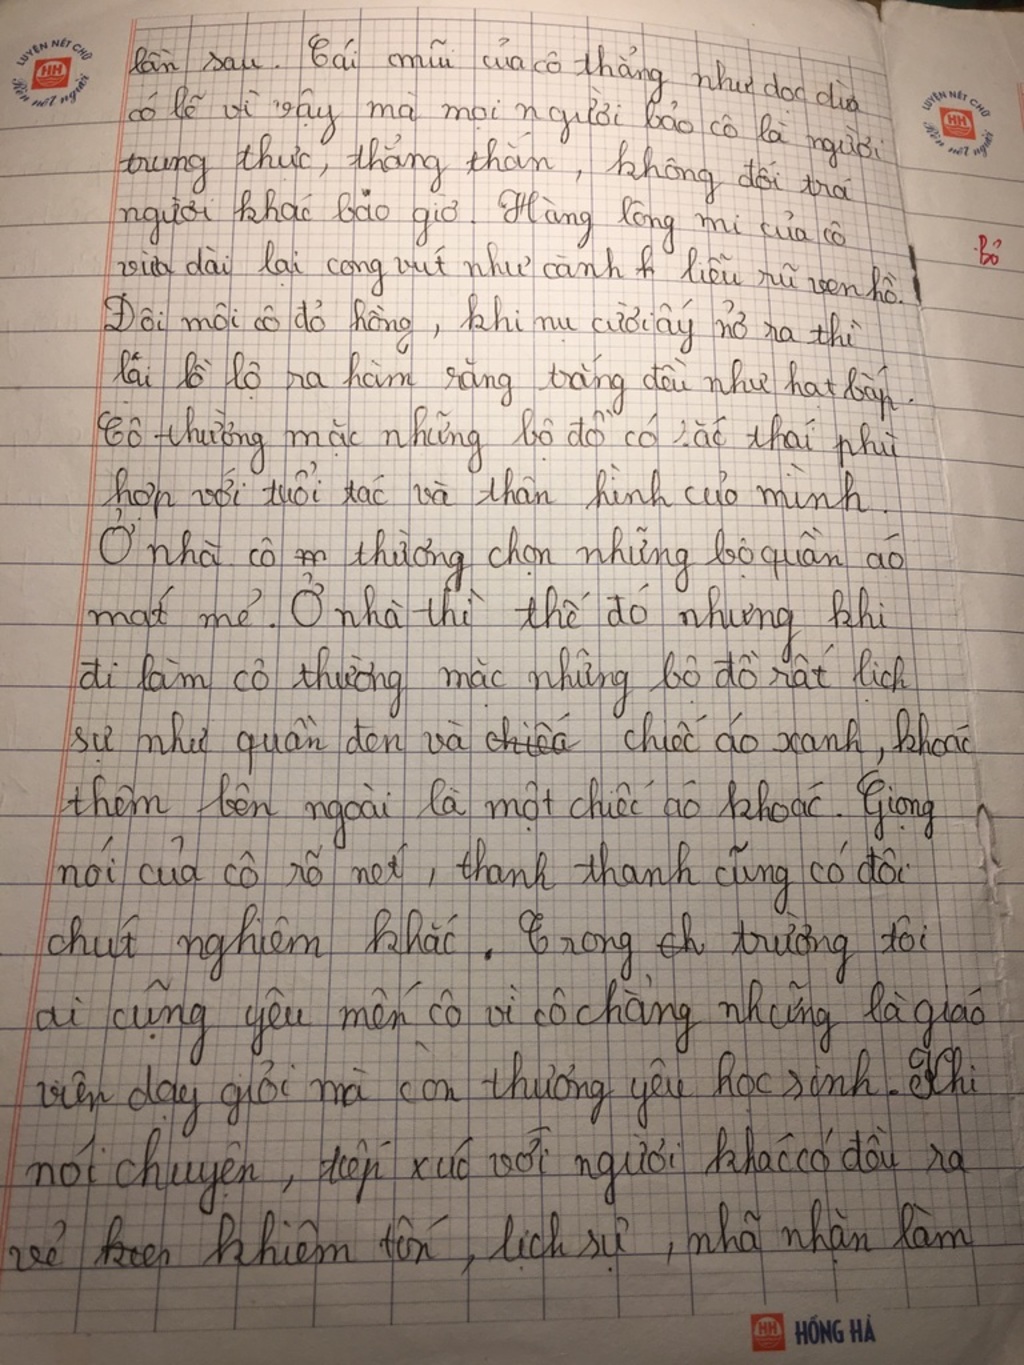 LUYỆN NÉT CHỮ
HH
Rèn nết người
LUYỆN NÉT CHỮ
HH
Rèn nết người
lần sau. Cái mũi của cô thẳng như dọc dừa
có lẽ vì vậy mà mọi người bảo cô là người
trung thực, thẳng thắn, không dối trá
người khác bao giờ. Hàng lông mi của cô
vừa dài lại cong vút như cành liễu rũ ven hồ.
Bỏ
Đôi môi cô đỏ hồng, khi nụ cười ấy nở ra thì
lại lồ lộ ra hàm răng trắng đều như hạt bắp.
Cô thường mặc những bộ đồ có sắc thái phù
hợp với tuổi tác và thân hình của mình.
Ở nhà cô thường chọn những bộ quần áo
mát mẻ. Ở nhà thì thế đó nhưng khi
đi làm cô thường mặc những bộ đồ rất lịch
sự như quần đen và chiếc áo xanh, khoác
thêm bên ngoài là một chiếc áo khoác. Giọng
nói của cô rõ nét, thanh thanh cũng có đôi
chút nghiêm khắc. Trong trường tôi
ai cũng yêu mến cô vì cô chẳng những là giáo
viên dạy giỏi mà còn thương yêu học sinh. Khi
nói chuyện, tiếp xúc với người khác cô đều ra
vẻ khiêm tốn, lịch sự, nhã nhặn làm
HH HỒNG HÀ